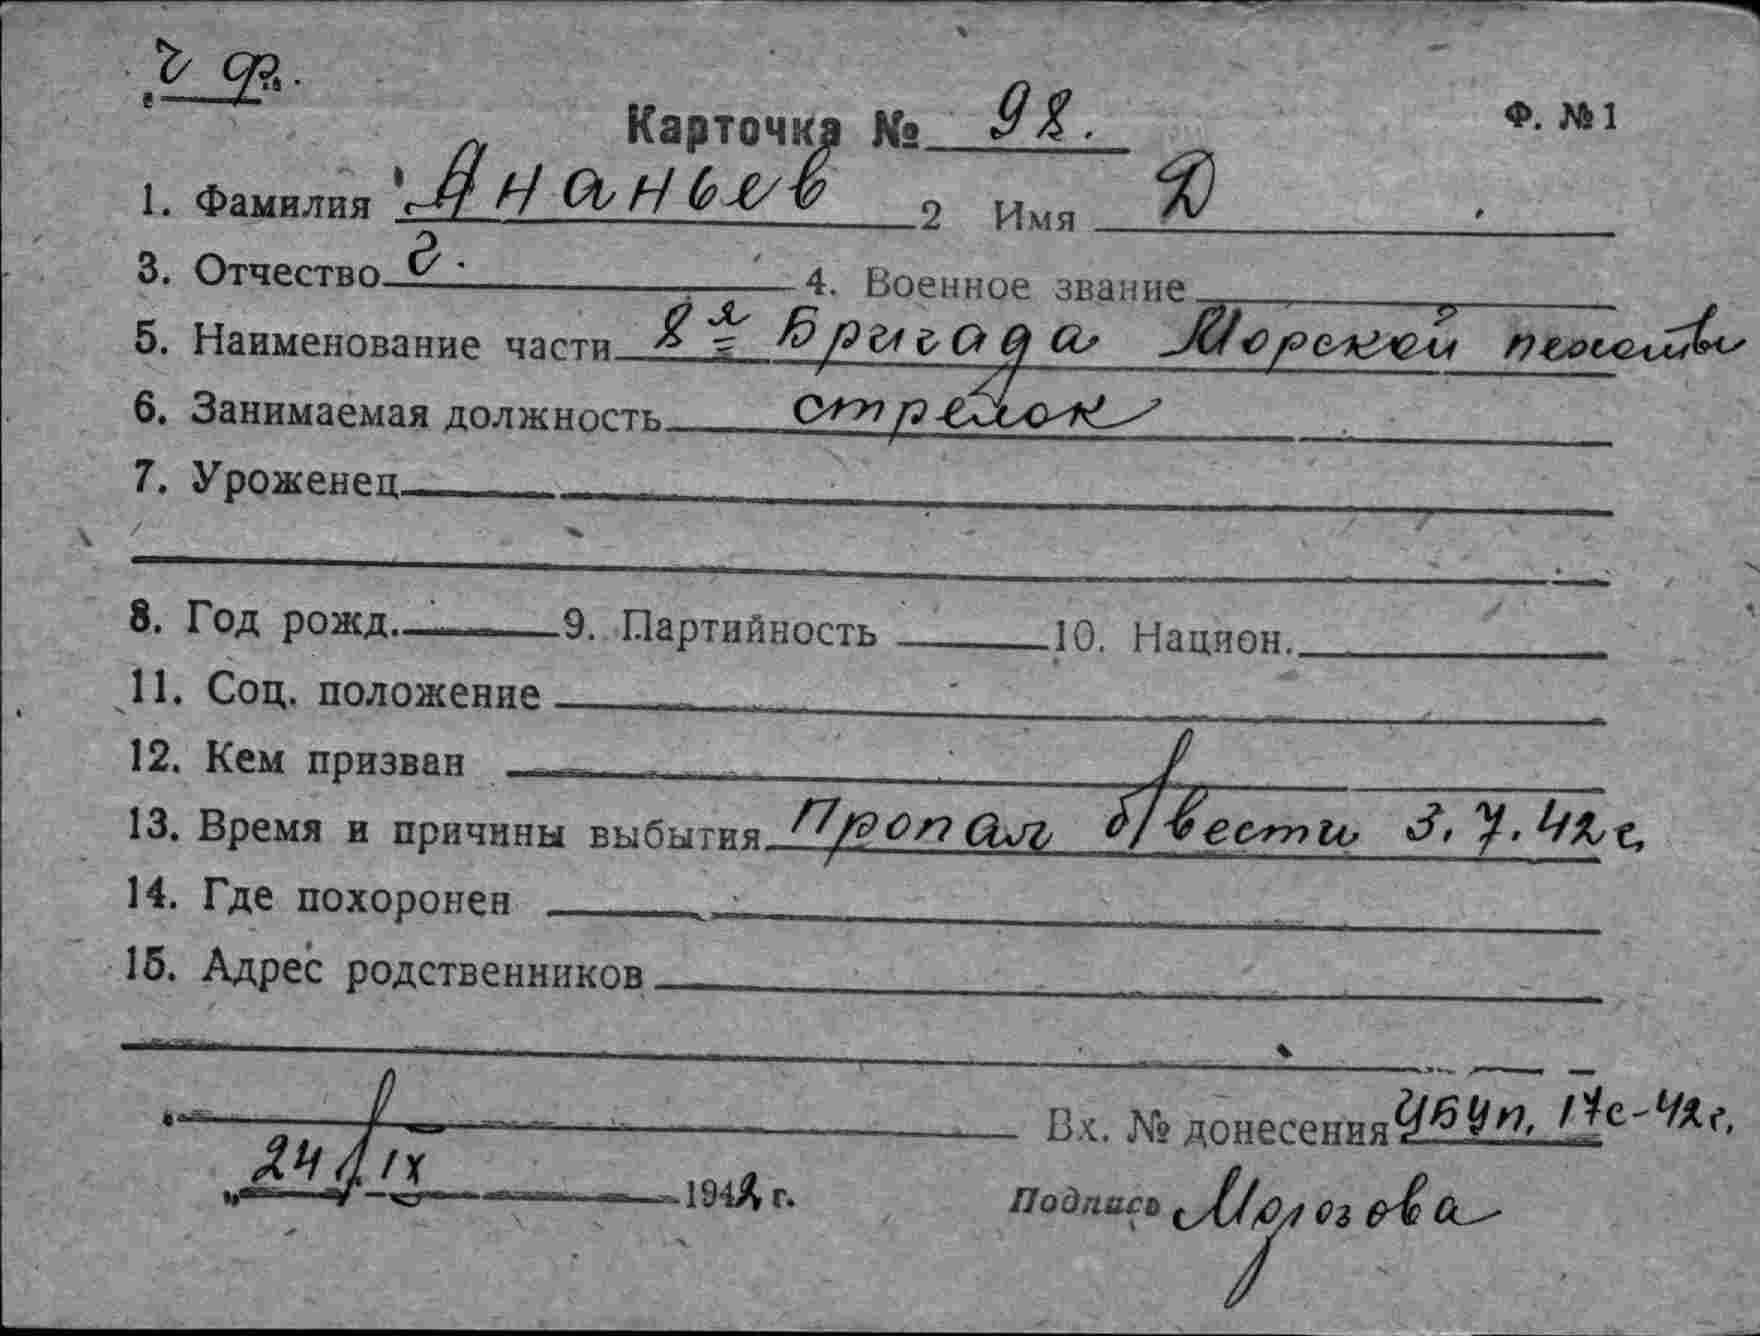 ч ф.
Карточка № 92. Ф. №1
1. Фамилия Ананьев 2 Имя Д
3. Отчество г. 4. Военное звание
5. Наименование части 8я Бригада Морской пехоты
6. Занимаемая должность стрелок
7. Уроженец
8. Год рожд. 9. Партийность 10. Национ.
11. Соц. положение
12. Кем призван
13. Время и причины выбытия Пропал б/вести 3.7.42г.
14. Где похоронен
15. Адрес родственников
Вх. № донесения 17с-42г.
"24/IX 1942 г.
Подпись Морозова